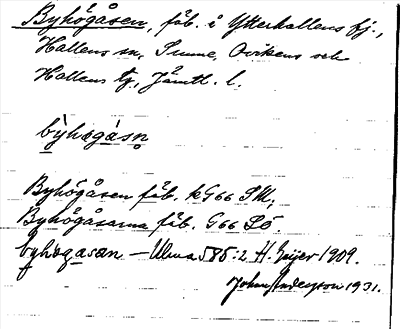 Byhögåsen, fäb. i Ytterhallens bj.,
Hallens sn, Sunne, Ovikens och
Hallens tg, Jämtl. l.
bỳhøgásn̥
Byhögåsen fäb. kG66 SM;
Byhögåsarna fäb. G66 SO.
byhøgasan — Ulma 585:2 H. Geijer 1909.
John Andersson 1931.